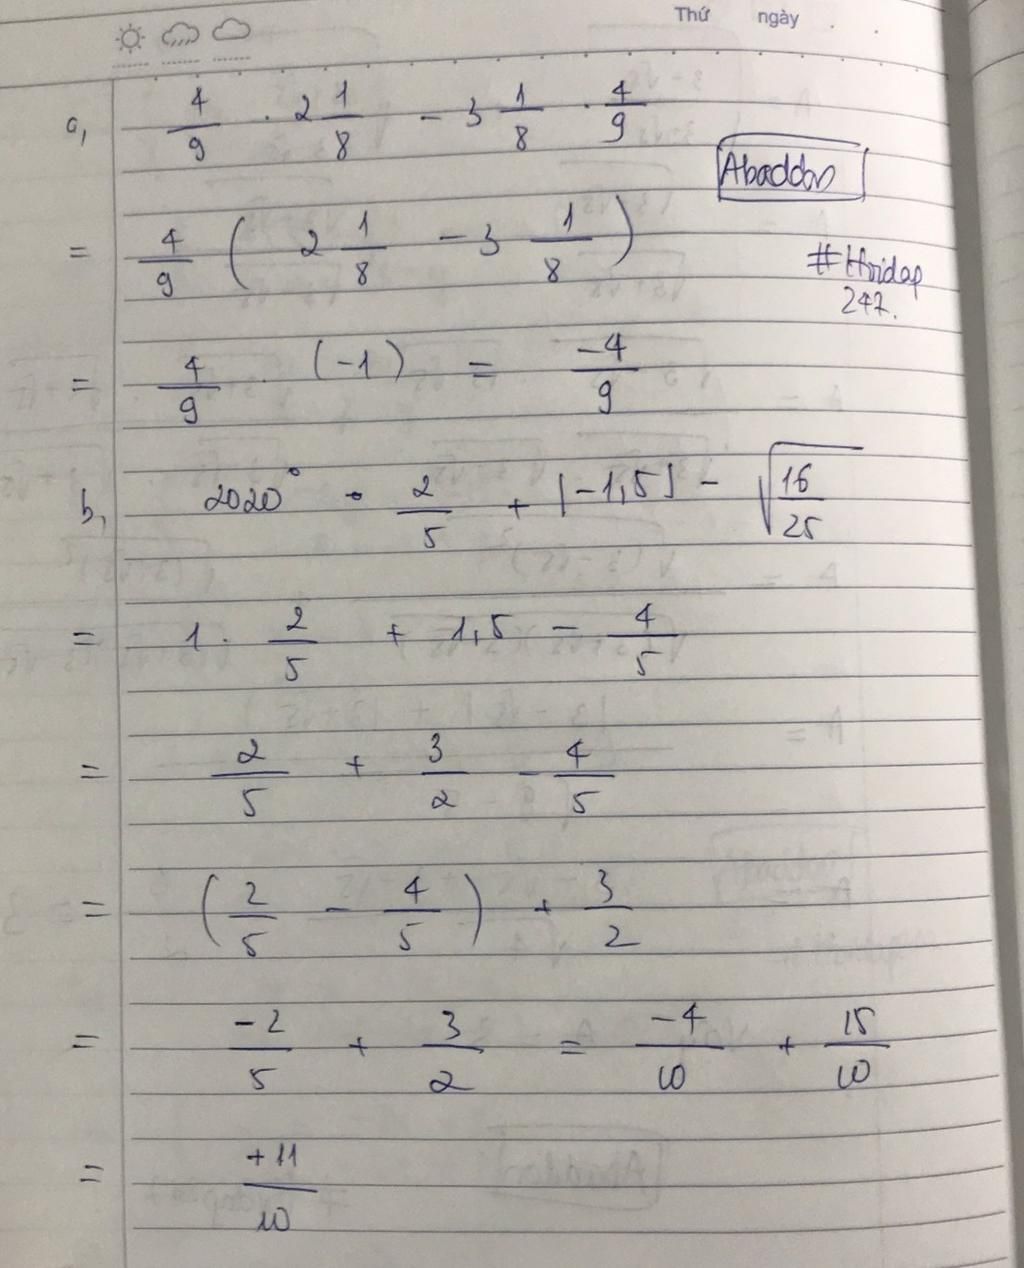 Thứ ngày
a, 4/9 . 2 1/8 - 3 1/8 . 4/9
Abaddon
= 4/9 ( 2 1/8 - 3 1/8 )
#Hoidap
247.
= 4/9 . (-1) = -4/9
b, 2020° . 2/5 + |-1,5| - √16/25
= 1 . 2/5 + 1,5 - 4/5
= 2/5 + 3/2 - 4/5
= (2/5 - 4/5) + 3/2
= -2/5 + 3/2 = -4/10 + 15/10
= +11/10